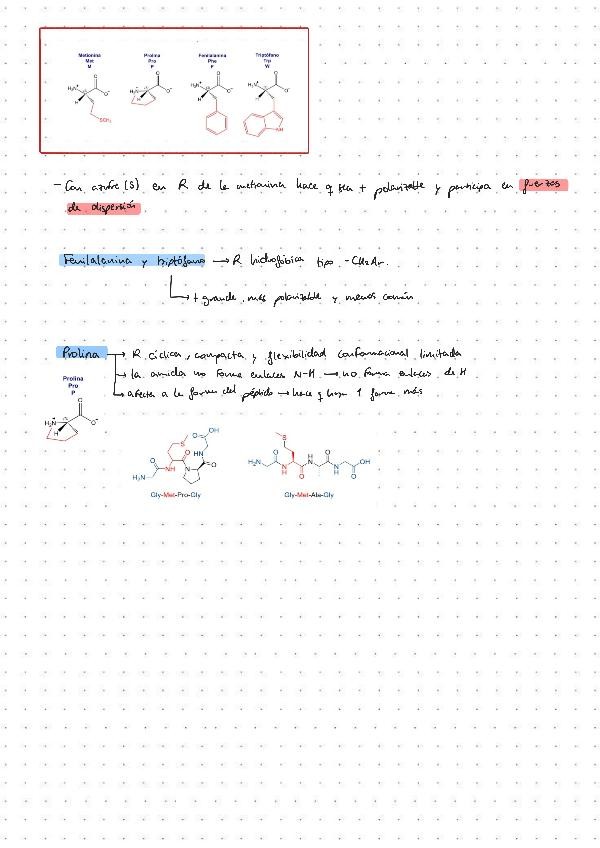 Metionina Prolina Fenilalanina Triptófano
Met Pro Phe Trp
M P F W
- Con azufre (S) en R de la metionina hace q sea + polarizable y participa en fuerzas
de dispersión
Fenilalanina y triptófano → R hidrofóbica tipo -CH2Ar.
+ grande, más polarizable y menos común
Prolina → R cíclica, compacta y flexibilidad conformacional limitada
→ la amida no forma enlaces N-H → no forma enlaces de H
→ afecta a la forma del péptido → hace q haya 1 forma más
Prolina
Pro
P
Gly-Met-Pro-Gly Gly-Met-Ala-Gly